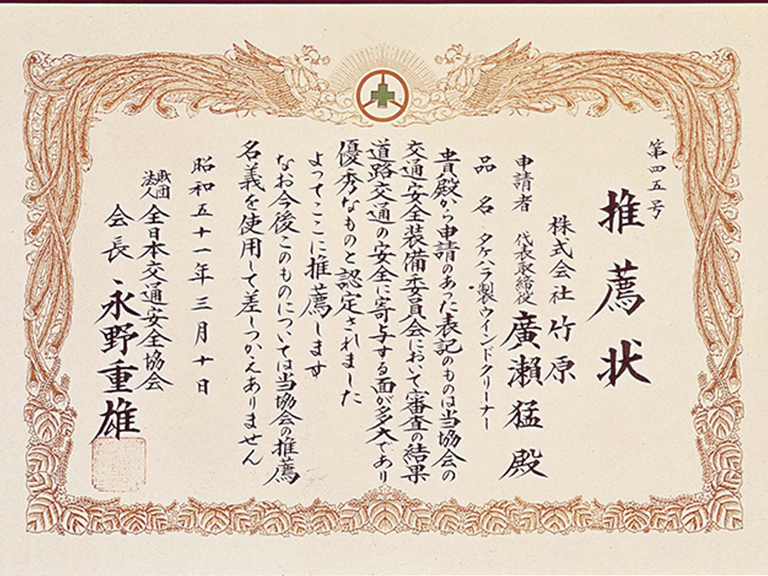 第四五号
推薦状
株式会社竹原
申請者 代表取締役 廣瀬猛殿
品名 タケハラ製ウインドクリーナー
貴殿から申請のあった表記のものは当協会の
交通安全装備委員会において審査の結果
道路交通の安全に寄与する面が多大であり
優秀なものと認定されました
よってここに推薦します
なお今後このものについては当協会の推薦
名義を使用して差しつかえありません
昭和五十一年三月十日
財団法人 全日本交通安全協会
会長 永野重雄